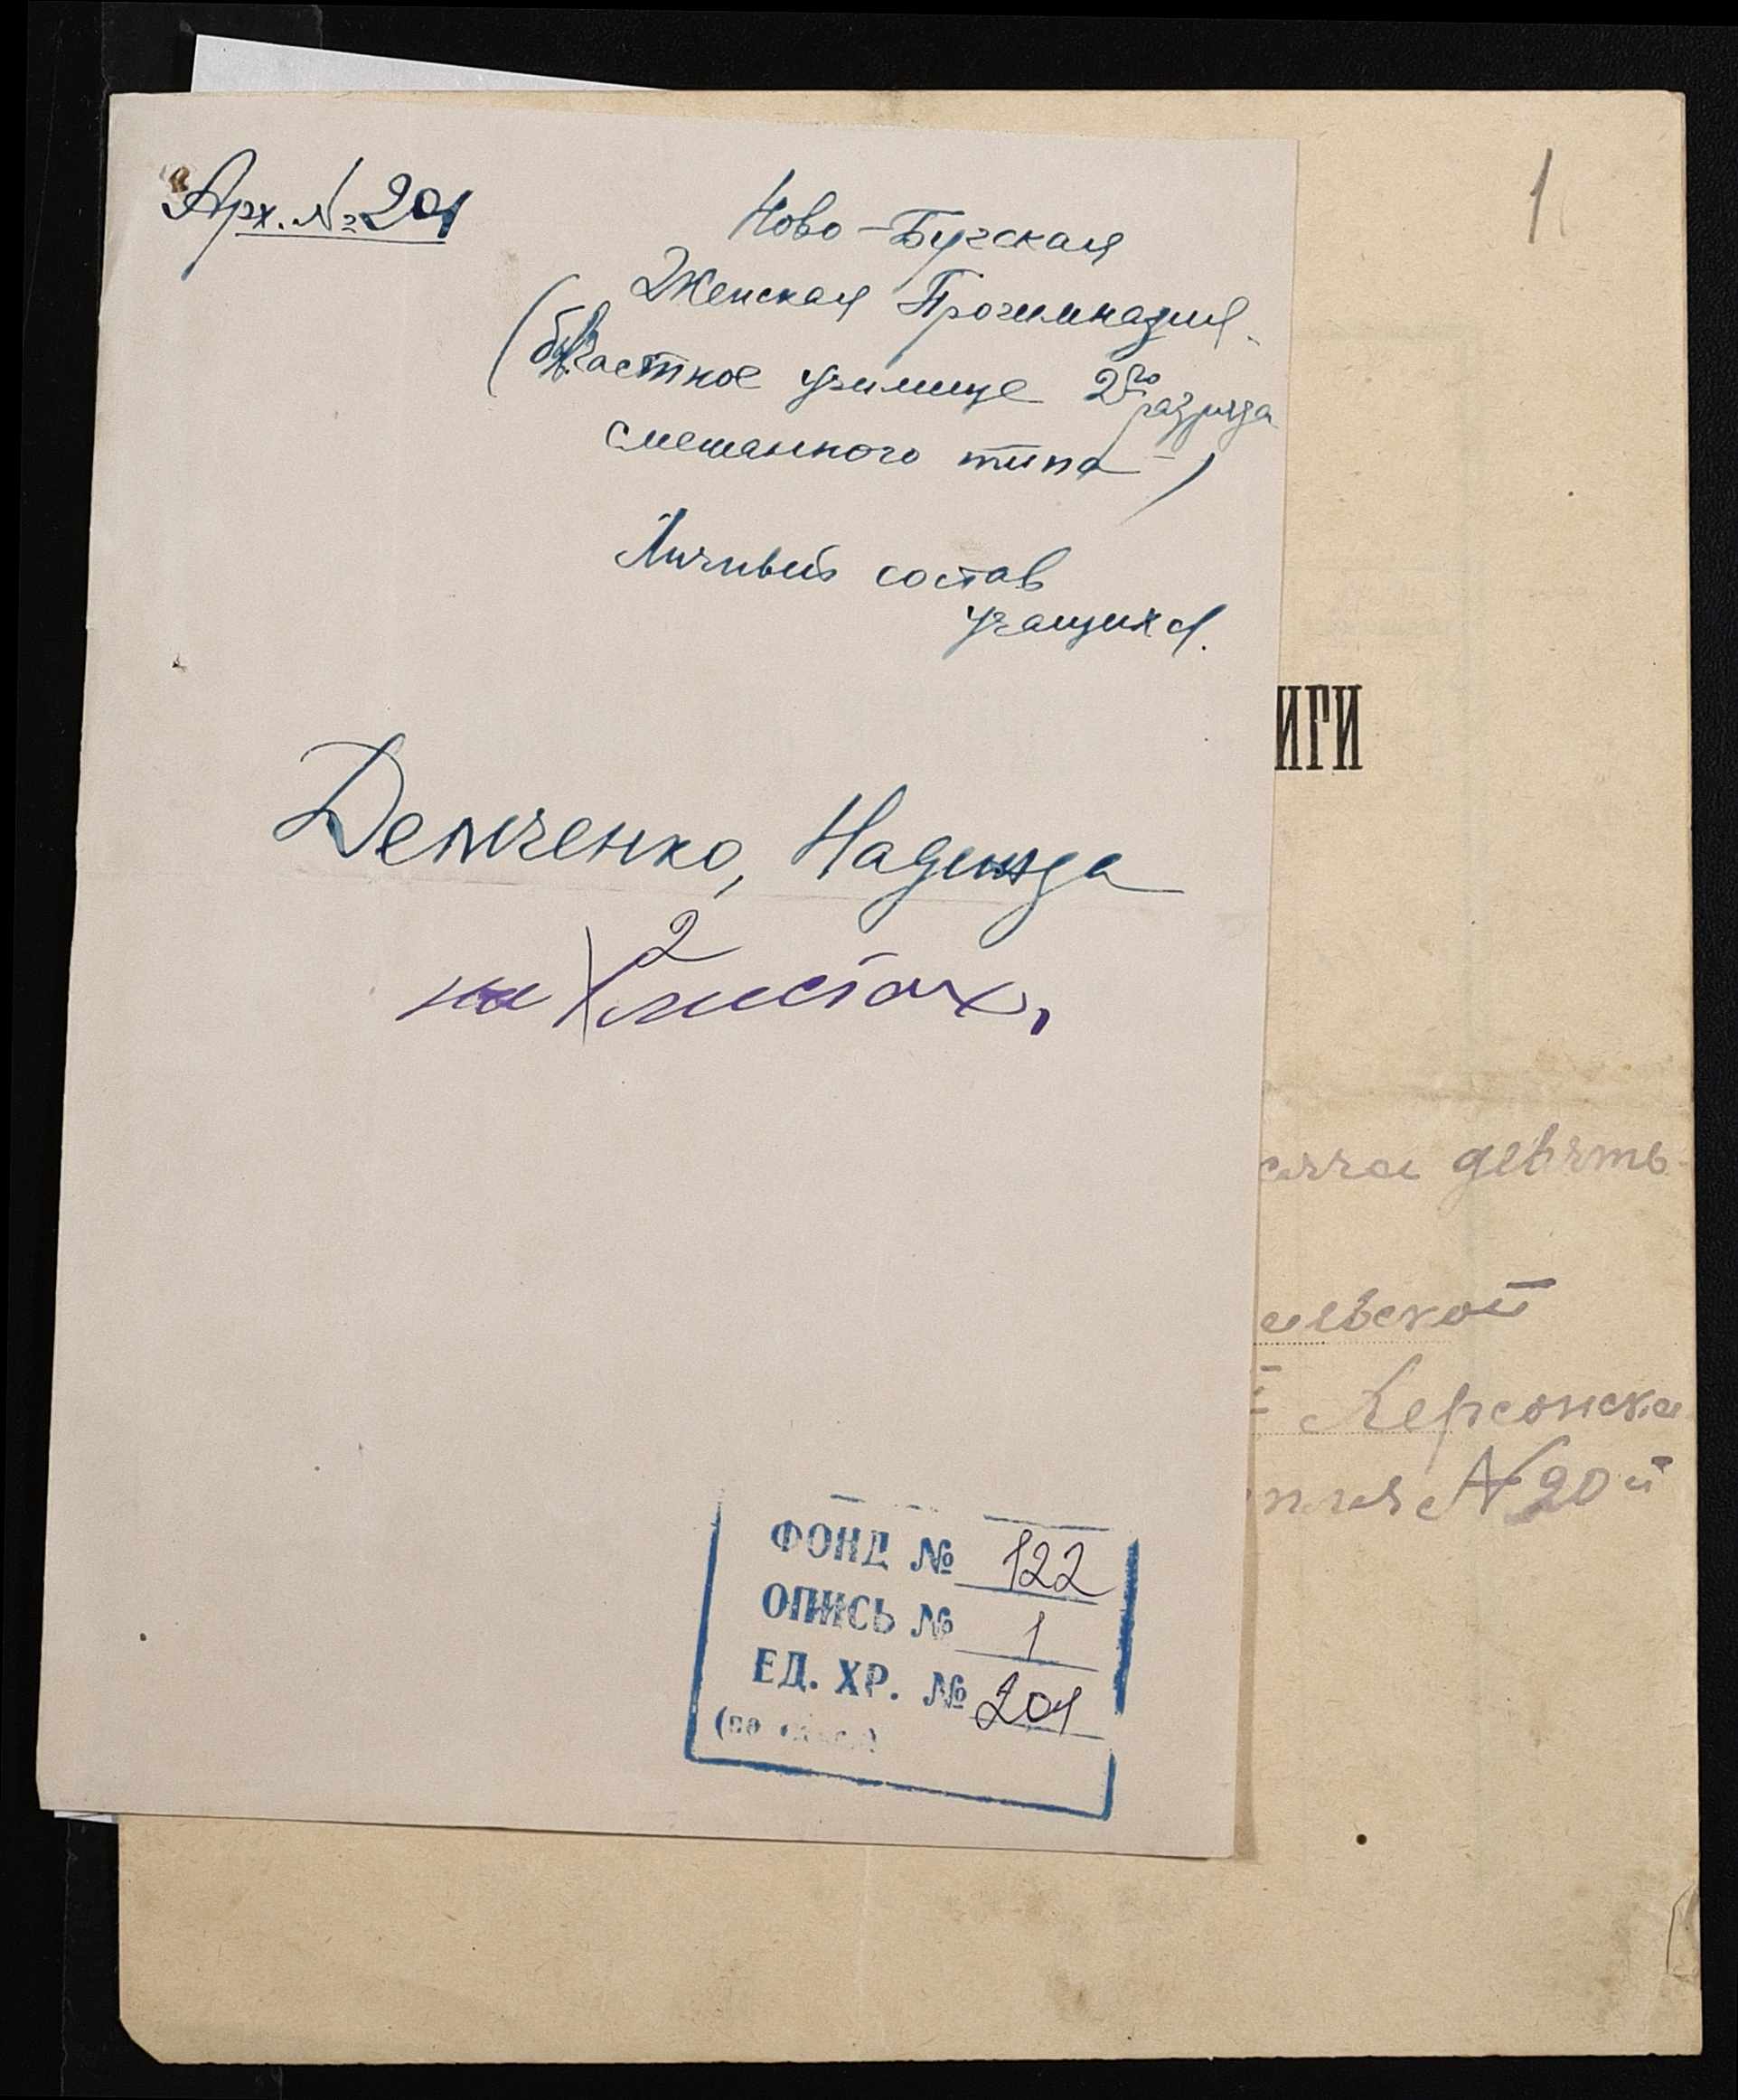 Арх. № 201
1
Ново-Бугская
Женская Прогимназия.
(быв. частное училище 2го разряда
смешанного типа)
Личный состав
учащихся.
ИГИ
Демченко, Надежда
на 2 листах,
девять
ельской
Херсонска
№ 20й
ФОНД № 122
ОПИСЬ № 1
ЕД. ХР. № 201